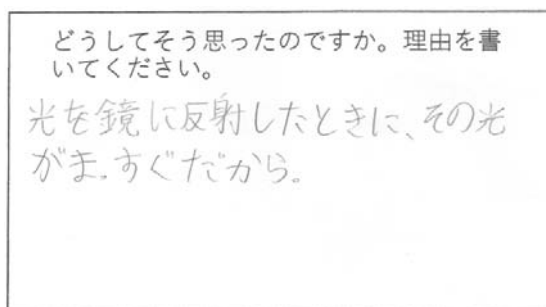 どうしてそう思ったのですか。理由を書
いてください。
光を鏡に反射したときに、その光
がまっすぐだから。